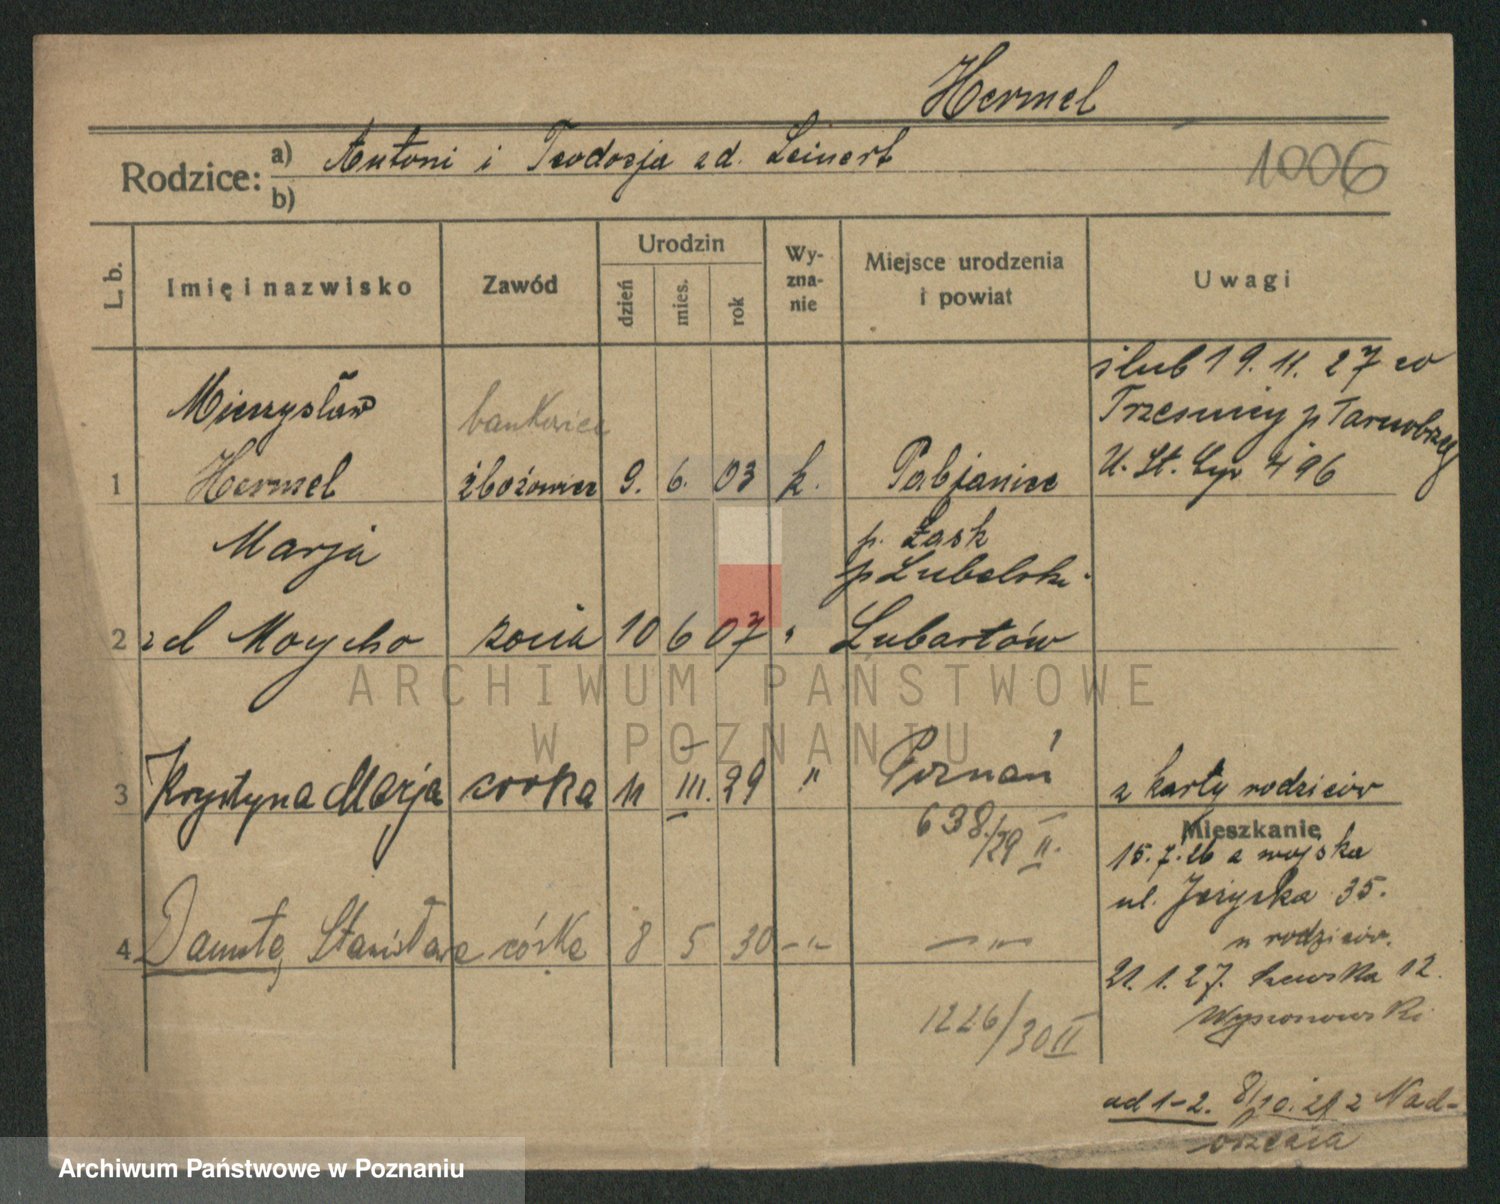 Hermel
Rodzice: a) Antoni i Teodozja zd. Leinert
b)
1006
L. b.
Imię i nazwisko
Zawód
Urodzin
dzień
mies.
rok
Wy-
zna-
nie
Miejsce urodzenia
i powiat
Uwagi
Mieczysław
Hermel
bankowiec
zbożowiec
1
9. 6. 03 k.
Pabjanice
p. Łask
ślub 19. 11. 27 w
p. Tarnobrzeg
U. St. Cyw 496
Marja
2 zd Mocycho żona 10 6 07 "
p. Lubelski
Lubartów
3 Krystyna Marja córka 11 III. 29 " Poznań
638/29 II.
z karty rodziców
Mieszkanie
15. 7. 26 z wojska
ul. Jeżycka 35.
u rodziców.
21. 1. 27. 12.
4 Danuta, Stanisława córka 8 5 30 -"- -"-
1226/30 II
ad 1-2. 8/10. z Nad-
ARCHIWUM PAŃSTWOWE
W POZNANIU
Archiwum Państwowe w Poznaniu